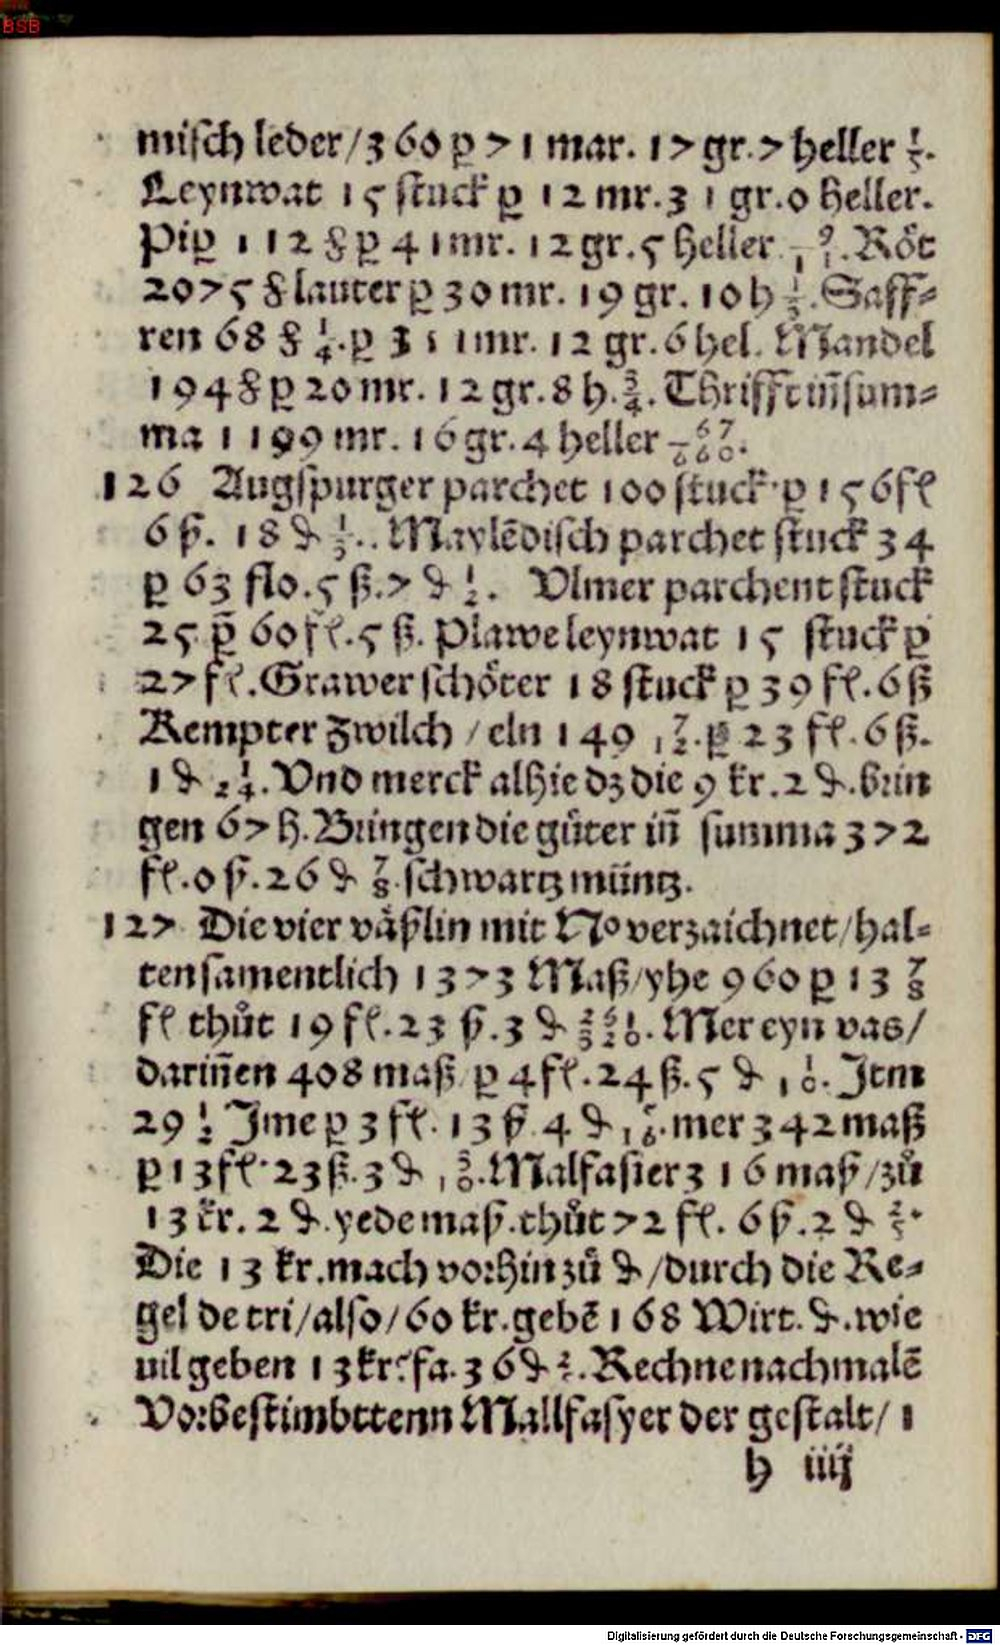 BSB
misch leder/360 ꝑ 71 mar. 17 gr. 7 heller 1/5.
Leynwat 15 stuck ꝑ 12 mr. 31 gr. 0 heller.
Pip 112 ℔ ꝑ 41 mr. 12 gr. 5 heller 9/11. Röt
2075 ℔ lauter ꝑ 30 mr. 19 gr. 10 h 1/3. Saff-
ren 68 ℔ 1/4. ꝑ 311 mr. 12 gr. 6 hel. Mandel
194 ℔ ꝑ 20 mr. 12 gr. 8 h. 3/4. Thrifft in̄ sum-
ma 1199 mr. 16 gr. 4 heller 67/660.
126 Augspurger parchet 100 stuck ꝑ 156 fl
6 ß. 18 ₰ 1/3.. Maylēdisch parchet stuck 34
ꝑ 63 flo. 5 ß. 7 ₰ 1/2. Vlmer parchent stuck
25 ꝑ 60 fl. 5 ß. Plawe leynwat 15 stuck ꝑ
27 fl. Grawer schöter 18 stuck ꝑ 39 fl. 6 ß
Kempter Zwilch / eln 149 7/12. ꝑ 23 fl. 6 ß.
1 ₰ 1/24. Vnd merck alhie dz die 9 kr. 2 ₰. brin
gen 67 h. Bringen die güter in̄ summa 372
fl. 0 ß. 26 ₰ 7/8. schwartz müntz.
127 Die vier väßlin mit No verzaichnet/hal-
ten samentlich 1373 Maß/yhe 960 ꝑ 13 7/8
fl thůt 19 fl. 23 ß. 3 ₰ 261/320. Mer eyn vas/
darin̄en 408 maß ꝑ 4 fl. 24 ß. 5 ₰ 1/10. Item
29 1/2 Ime ꝑ 3 fl. 13 ß 4 ₰ mer 342 maß
ꝑ 13 fl. 23 ß. 3 ₰ 3/10. Malfasier 316 maß /zů
13 kr. 2 ₰. yede maß. thůt 72 fl. 6 ß. 2 ₰ 2/5.
Die 13 kr. mach vorhin zů ₰ /durch die Re-
gel de tri/also/60 kr. gebē 168 Wirt. ₰. wie
uil geben 13 kr. fa. 36 ₰ 2/5. Rechne nachmalē
Vorbestimbttenn Mallfasyer der gestalt/ 1
h iiij
Digitalisierung gefördert durch die Deutsche Forschungsgemeinschaft - DFG